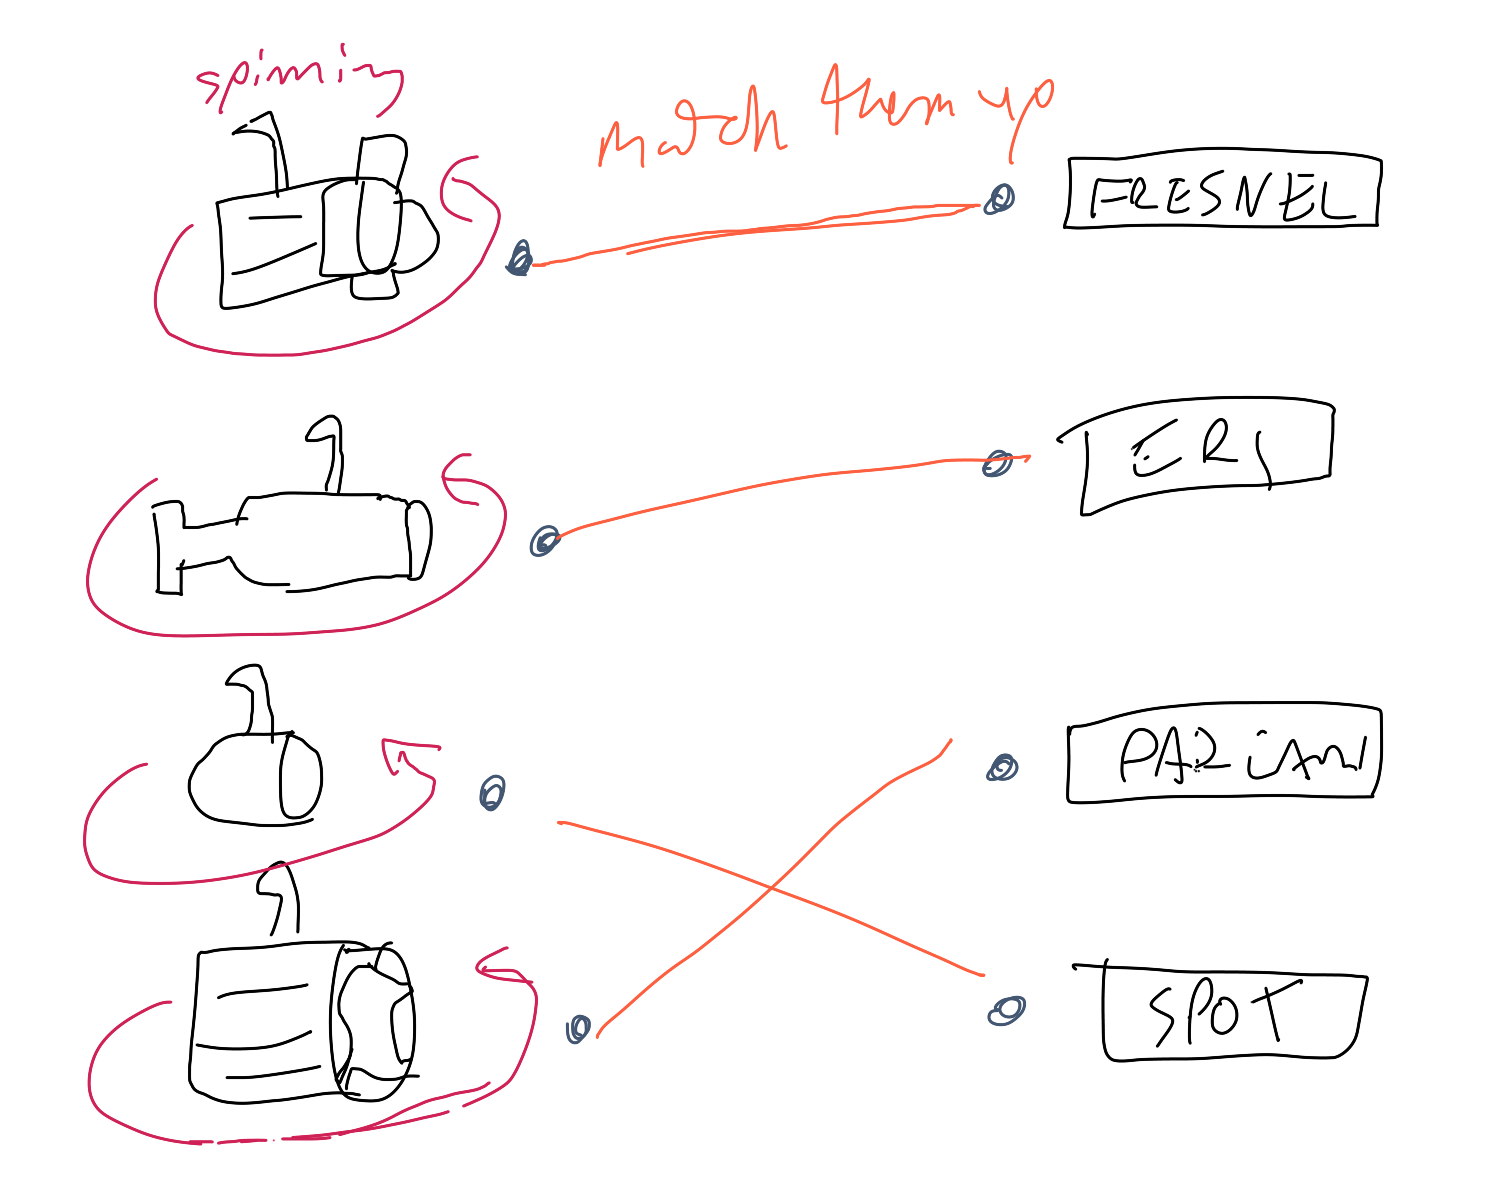 spinning
match them up
FRESNEL
ERS
PAR CAN
SPOT